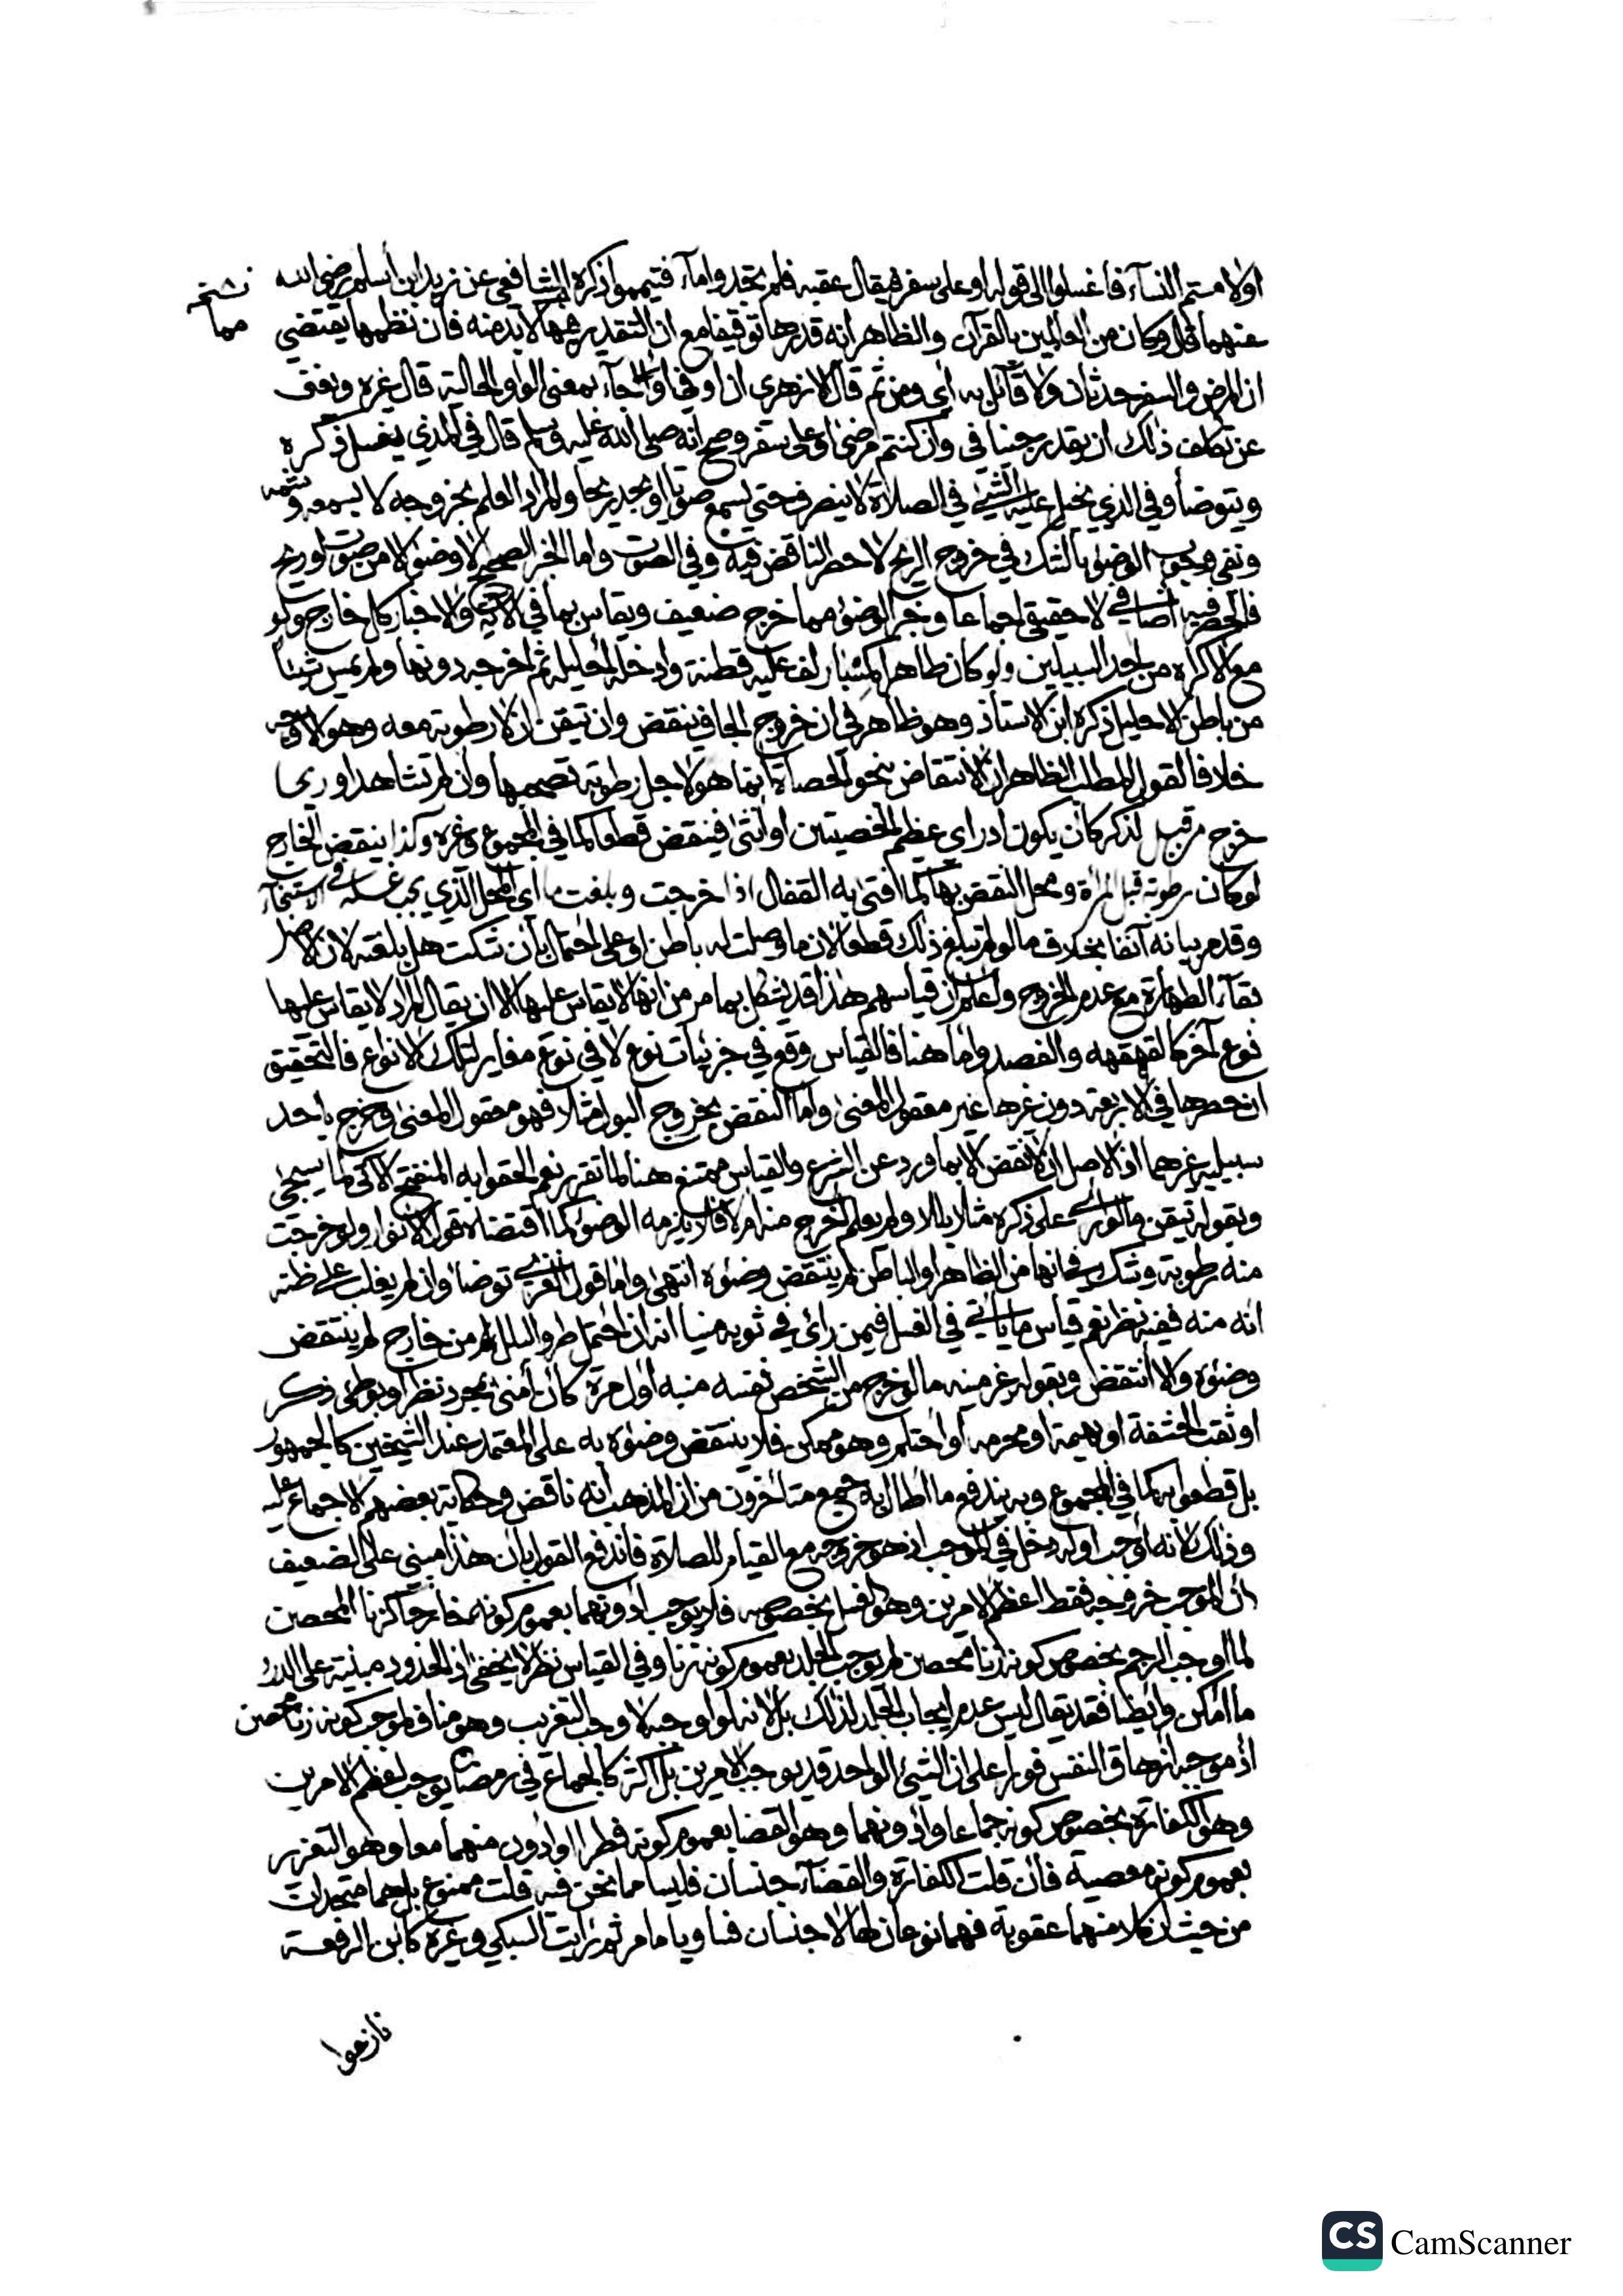 اولامستم النسآء فاغسلوا الى قوله او على سفر فيقال عقبه فلم تجدوا مآء فتيمموا ذكره الشافعي عن زيد ابن أسلم رضي الله
نسخة
مما
عنهما قال وكان من العالمين بالقرآن والظاهر أنه قدرها توقيفا مع ان التقدير فيها لابد منه فان نظمها يقتضي
ان المرض والسفر حدثان ولا قائل به أي ومن ثم قال الازهري ان او في او جآء بمعنى الواو الحالية قال غيره ويغني
عن تكلف ذلك ان يقدر جنبا في وان كنتم مرضى او على سفر وصح انه صلى الله عليه وسلم قال في المذي يغسل ذكره
ويتوضأ وفي الذي يخيل اليه الشيئ في الصلاة لا ينصرف حتى يسمع صوتا او يجد ريحا والمراد العلم بخروجه لا يسمعه وشمه
ونفى وجوب الوضوء بالشك في خروج الريح لا حصر الناقض فيه وفي الصوت واما الخبر الصحيح لا وضوء الا من صوت او ريح
فالحصر فيه اضافي لا حقيقي اجماعا وخبر الوضوء مما خرج ضعيف ويقاس بما في الآية والاخبار كل خارج ولو
مع الاكراه من احد السبيلين ولو كان طاهرا لف عليه قطنة وادخله احليله ثم اخرجه دونها ولم يمس شيئا
من باطن الاحليل ذكره ابن الاستاذ وهو ظاهر في ان خروج الجاف ينقض وان تيقن ان لا رطوبة معه وهو الاوجه
خلافا لقول المطلب الظاهر ان الانتقاض بنحو الحصاة انما هو لاجل رطوبة تصحبها وان لم تشاهد او ريحا
خرج من قبل لذكر كأن يكون ادر اي عظيم الخصيتين او أنثى فينقض قطعا كما في المجموع وغيره وكذا ينقض الخارج
لو كان رطوبة قبل المرأة ومحل النقض بها كما افتى به القفال اذا خرجت وبلغت ما اي المحل الذي يجب غسله في الاستنجآء
وقد مر بيانه آنفا بخلاف ما لو لم تبلغ ذلك قطعا لان ما وصلت له باطن او على احتمال بأن شكت هل بلغته لان الاصل
بقآء الطهارة مع عدم الخروج واعلم ان قياسهم هذا قد يشكل بما مر من انها لا يقاس عليها الا ان يقال المراد لا يقاس عليها
نوع آخر كالقهقهة والفصد واما هنا فالقياس وقع في جزئيات نوع لا في نوع مغاير لتلك الانواع فالتحقيق
ان حصرها في الاربعة دون غيرها غير معقول المعنى واما النقض بخروج البول مثلا فهو معقول المعنى وخرج باحد
سبيليه غيرهما اذ الاصل ان لا نقض الا بما ورد عن الشرع والقياس ممتنع هنا لما تقرر نعم الحقوا به المنفتح الآتي كما سيجئ
وبقوله تيقن ما لو رأى على ذكره مثلا بللا ولم يعلم أخرج منه ام لا فلا يلزمه الوضوء كما اقتضاه قول الانوار ولو خرجت
منه رطوبة وشك في انها من الظاهر او الباطن لم ينتقض وضوءه انتهى واما قول الغزي توضأ وان لم يغلب على ظنه
انه منه ففيه نظر نعم قياس ما ياتي في الغسل فيمن رأى في ثوبه منيا انه ان احتمل طرو البلل من خارج لم ينتقض
وضوءه والا انتقض وبقوله غير منيه ما لو خرج من الشخص نفسه منيه اول مرة كأن أمنى بمجرد نظر او بوطئ ذكر
او ثقب الحشفة او بهيمة او محرمه او احتلم وهو ممكن فلا ينتقض وضوءه به على المعتمد عند الشيخين كالجمهور
بل قطعوا به كما في المجموع وبه يندفع ما اطال به جمع متأخرون من ان المذهب انه ناقض وحكاية بعضهم الاجماع عليه
وذلك لانه اوجب اوله دخل في الموجب اذ هو خروجه مع القيام للصلاة فاندفع القول بان هذا مبني على الضعيف
ان الموجب خروجه فقط اعظم الامرين وهو الغسل بخصوصه فلا يوجب ادونهما بعموم كونه خارجا كزنا المحصن
لما اوجب الرجم بخصوص كونه زنا محصن لم يوجب الجلد بعموم كونه زنا وفي القياس نظر لا يخفى اذ الحدود مبنية على الدرء
ما امكن وايضا فقد يقال ليس عدم ايجاب الجلد لذلك بل لانه لو اوجبه لاوجب التغريب وهو مناف لموجب كونه زنا محصن
اذ موجبه ازهاق النفس فورا على ان الشيئ الواحد قد يوجب الامرين بل اكثر كالجماع في رمضان يوجب اعظم الامرين
وهو الكفارة بخصوص كونه جماعا وادونهما وهو القضا بعموم كونه فطرا وادون منهما معا وهو التعزير
بعموم كونه معصية فان قلت الكفارة والقضآء جنسان فليسا مما نحن فيه قلت ممنوع بل هما متحدان
من حيث ان كلا منهما عقوبة فهما نوعان لها لا جنسان فساويا ما مر ثم رايت السبكي وغيره كابن الرفعة
نازعوا
CS CamScanner